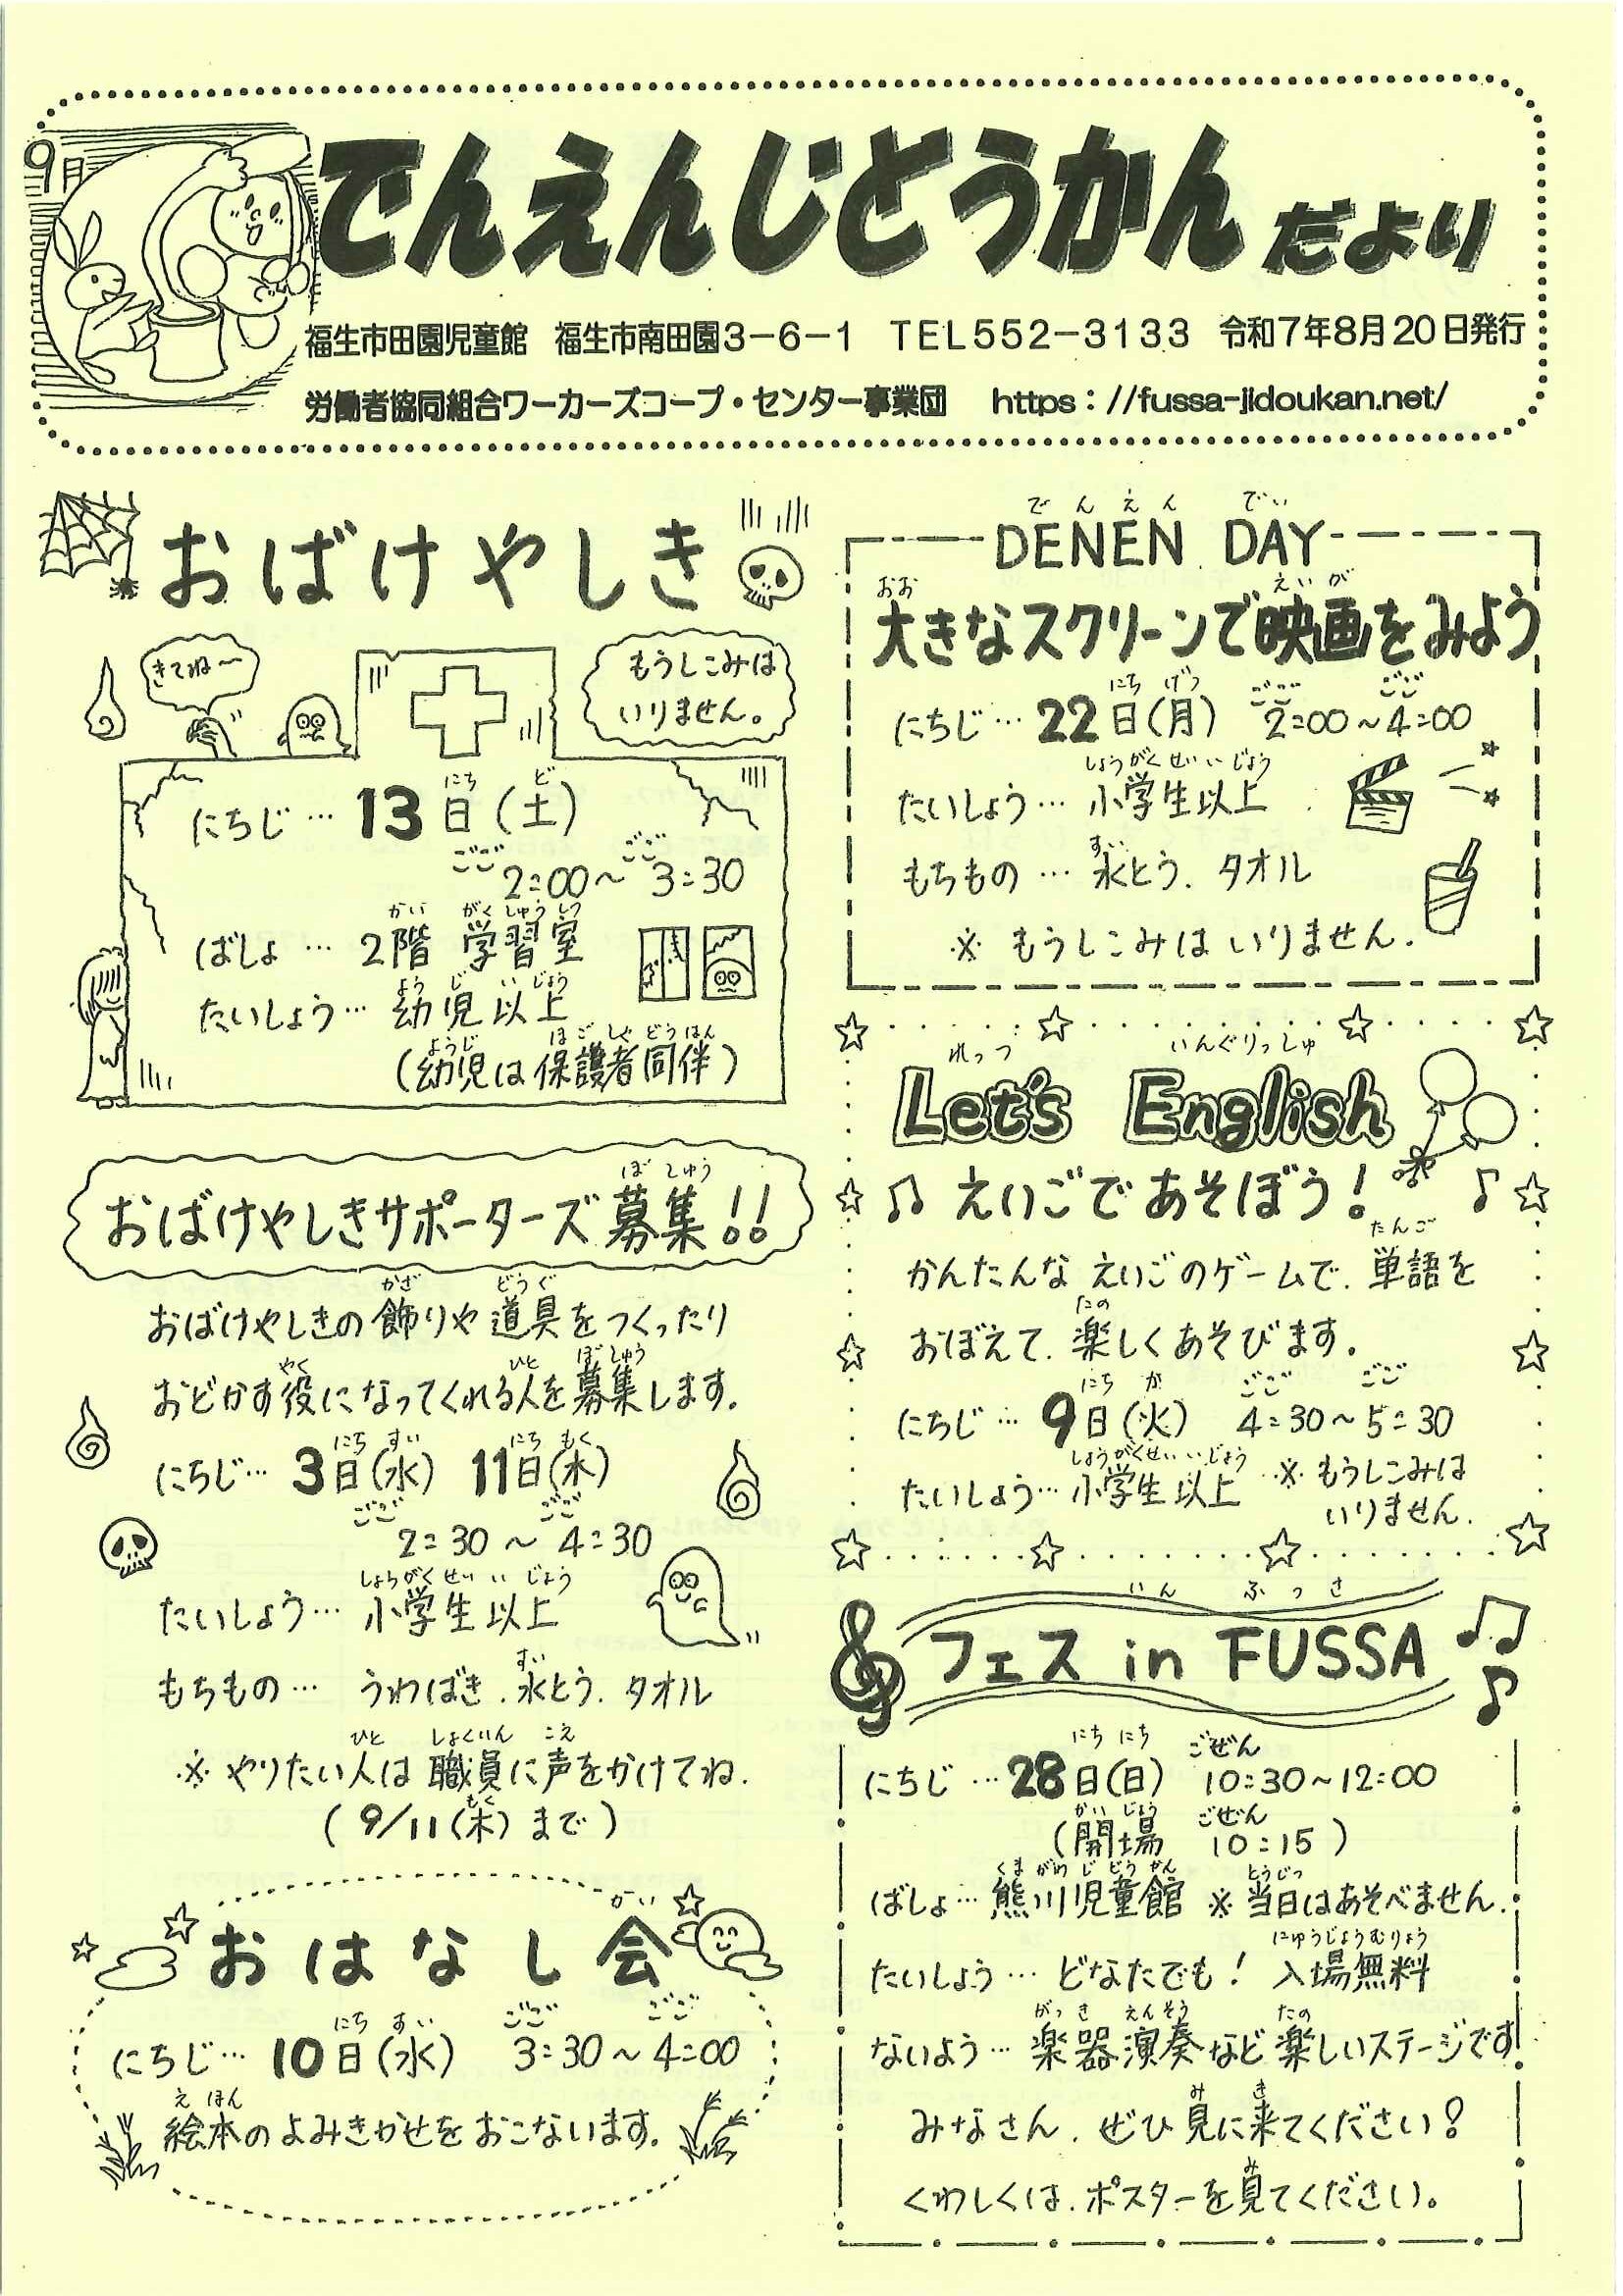 9月
でんえんじどうかん だより
福生市田園児童館 福生市南田園3-6-1 TEL552-3133 令和7年8月20日発行
労働者協同組合ワーカーズコープ・センター事業団 https://fussa-jidoukan.net/
おばけやしき
きてね〜
もうしこみは
いりません。
にちじ… 13日(土)
ごご2:00〜ごご3:30
ばしょ… 2階 学習室
たいしょう… 幼児以上
(幼児は保護者同伴)
おばけやしきサポーターズ募集!!
おばけやしきの飾りや道具をつくったり
おどかす役になってくれる人を募集します。
にちじ… 3日(水) 11日(木)
ごご2:30〜ごご4:30
たいしょう… 小学生以上
もちもの… うわばき、水とう、タオル
※やりたい人は職員に声をかけてね。
(9/11(木)まで)
おはなし会
にちじ… 10日(水) ごご3:30〜ごご4:00
絵本のよみきかせをおこないます。
DENEN DAY
大きなスクリーンで映画をみよう
にちじ… 22日(月) ごご2:00〜ごご4:00
たいしょう… 小学生以上
もちもの… 水とう、タオル
※もうしこみはいりません。
Let's English
えいごであそぼう!
かんたんなえいごのゲームで、単語を
おぼえて、楽しくあそびます。
にちじ… 9日(火) ごご4:30〜ごご5:30
たいしょう… 小学生以上 ※もうしこみは
いりません。
フェス in FUSSA
にちじ… 28日(日) ごぜん10:30〜12:00
(開場 ごぜん10:15)
ばしょ… 熊川児童館 ※当日はあそべません。
たいしょう… どなたでも! 入場無料
ないよう… 楽器演奏など楽しいステージです!
みなさん、ぜひ見に来てください!
くわしくは、ポスターを見てください。